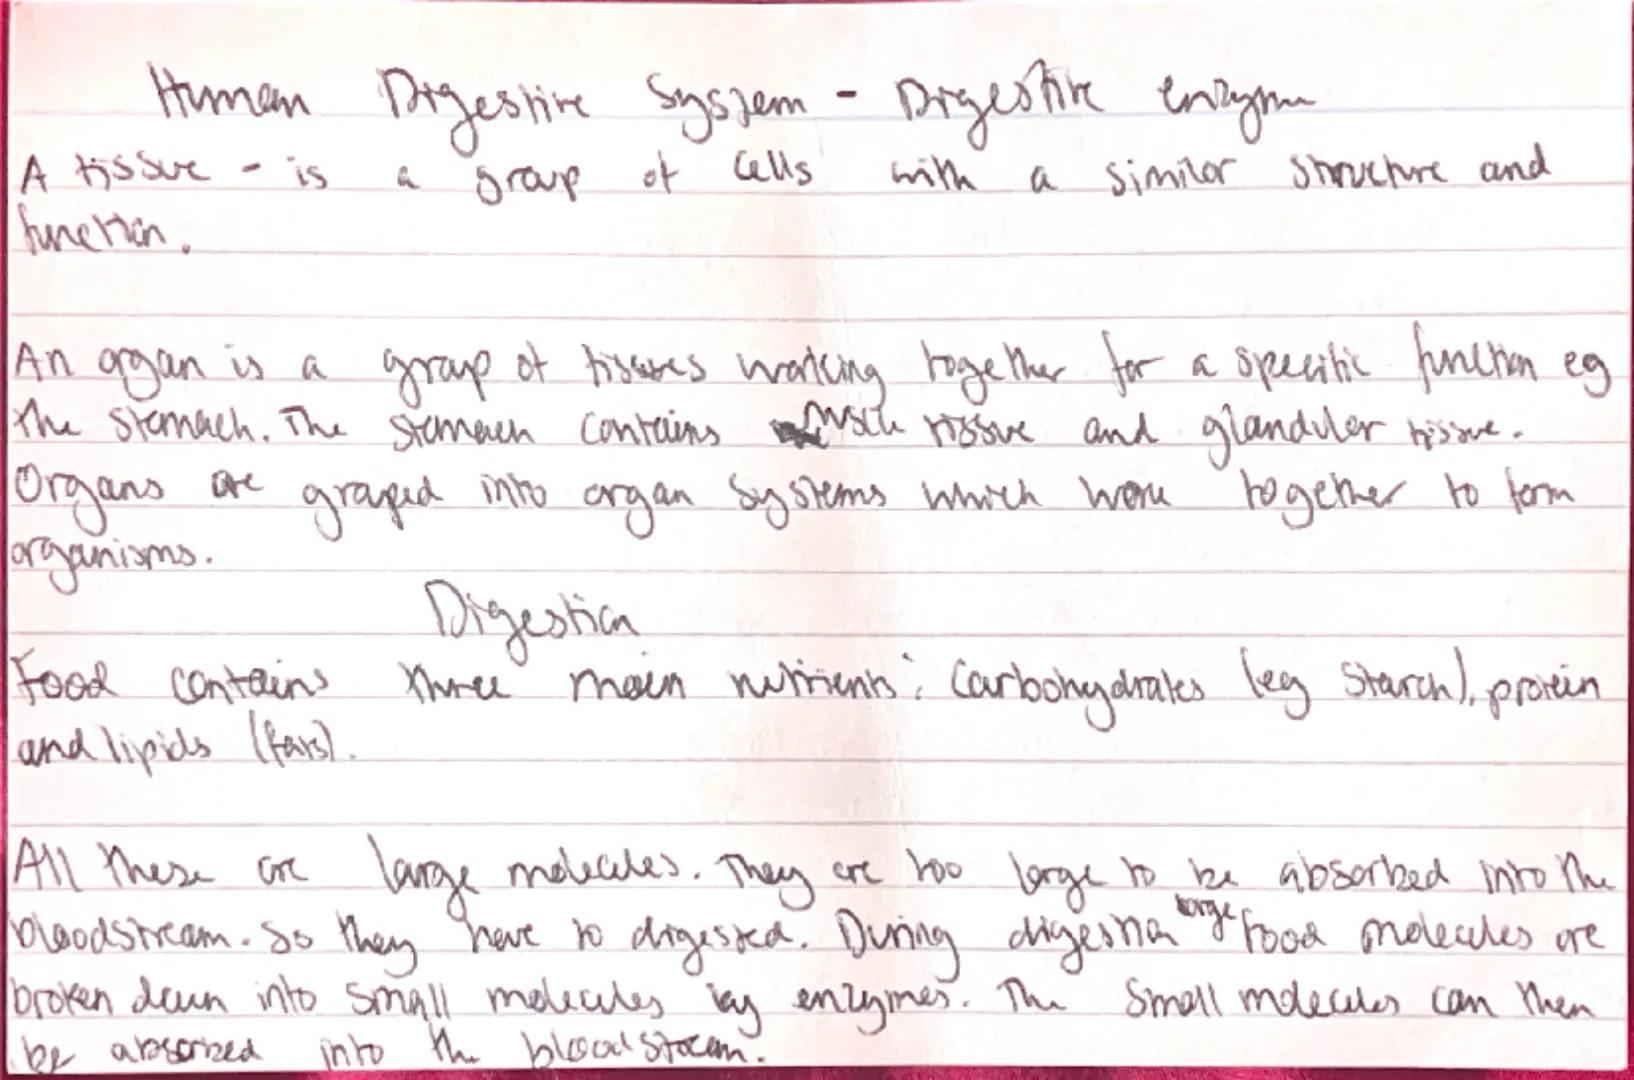 Human Digestive System - Digestive enzyme
A tissue - is a group of cells with a similar structure and
function.
An organ is a group of tissues working together for a specific function eg
the stomach. The stomach contains muscle tissue and glandular tissue.
Organs are grouped into organ systems which work together to form
organisms.
Digestion
Food contains three main nutrients: Carbohydrates (eg Starch), protein
and lipids (fats).
All these are large molecules. They are too large to be absorbed into the
bloodstream. So they have to digested. During digestion large food molecules are
broken down into small molecules by enzymes. The small molecules can then
be absorbed into the bloodstream.